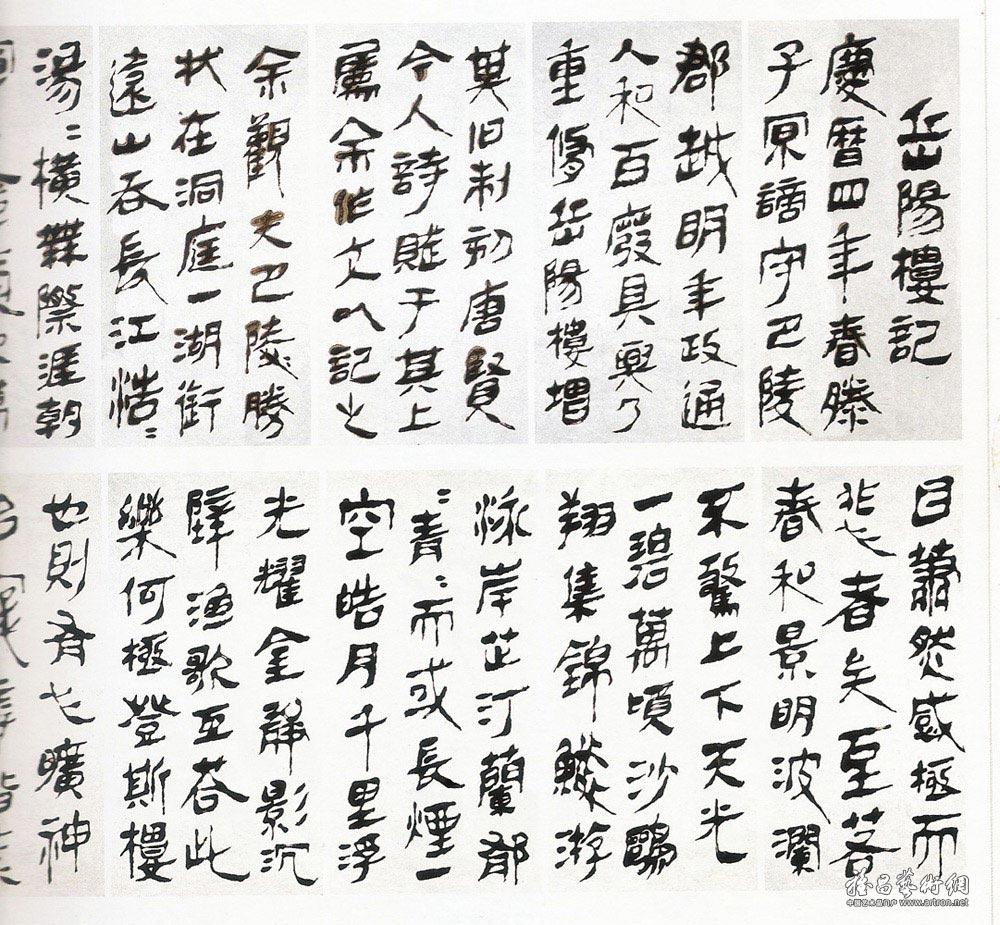 岳陽樓記
慶曆四年春滕
子京謫守巴陵
郡越明年政通
人和百廢具興乃
重修岳陽樓增
其旧制刻唐賢
今人詩賦于其上
屬余作文以記之
余觀夫巴陵勝
狀在洞庭一湖銜
遠山吞長江浩〻
湯〻橫無際涯朝
目蕭然感極而
悲者矣至若
春和景明波瀾
不驚上下天光
一碧萬頃沙鷗
翔集錦鱗游
泳岸芷汀蘭郁
〻青〻而或長煙一
空皓月千里浮
光耀金靜影沉
璧漁歌互荅此
樂何極登斯樓
也則有心曠神
雅昌藝術網
中国艺术品门户 www.artron.net